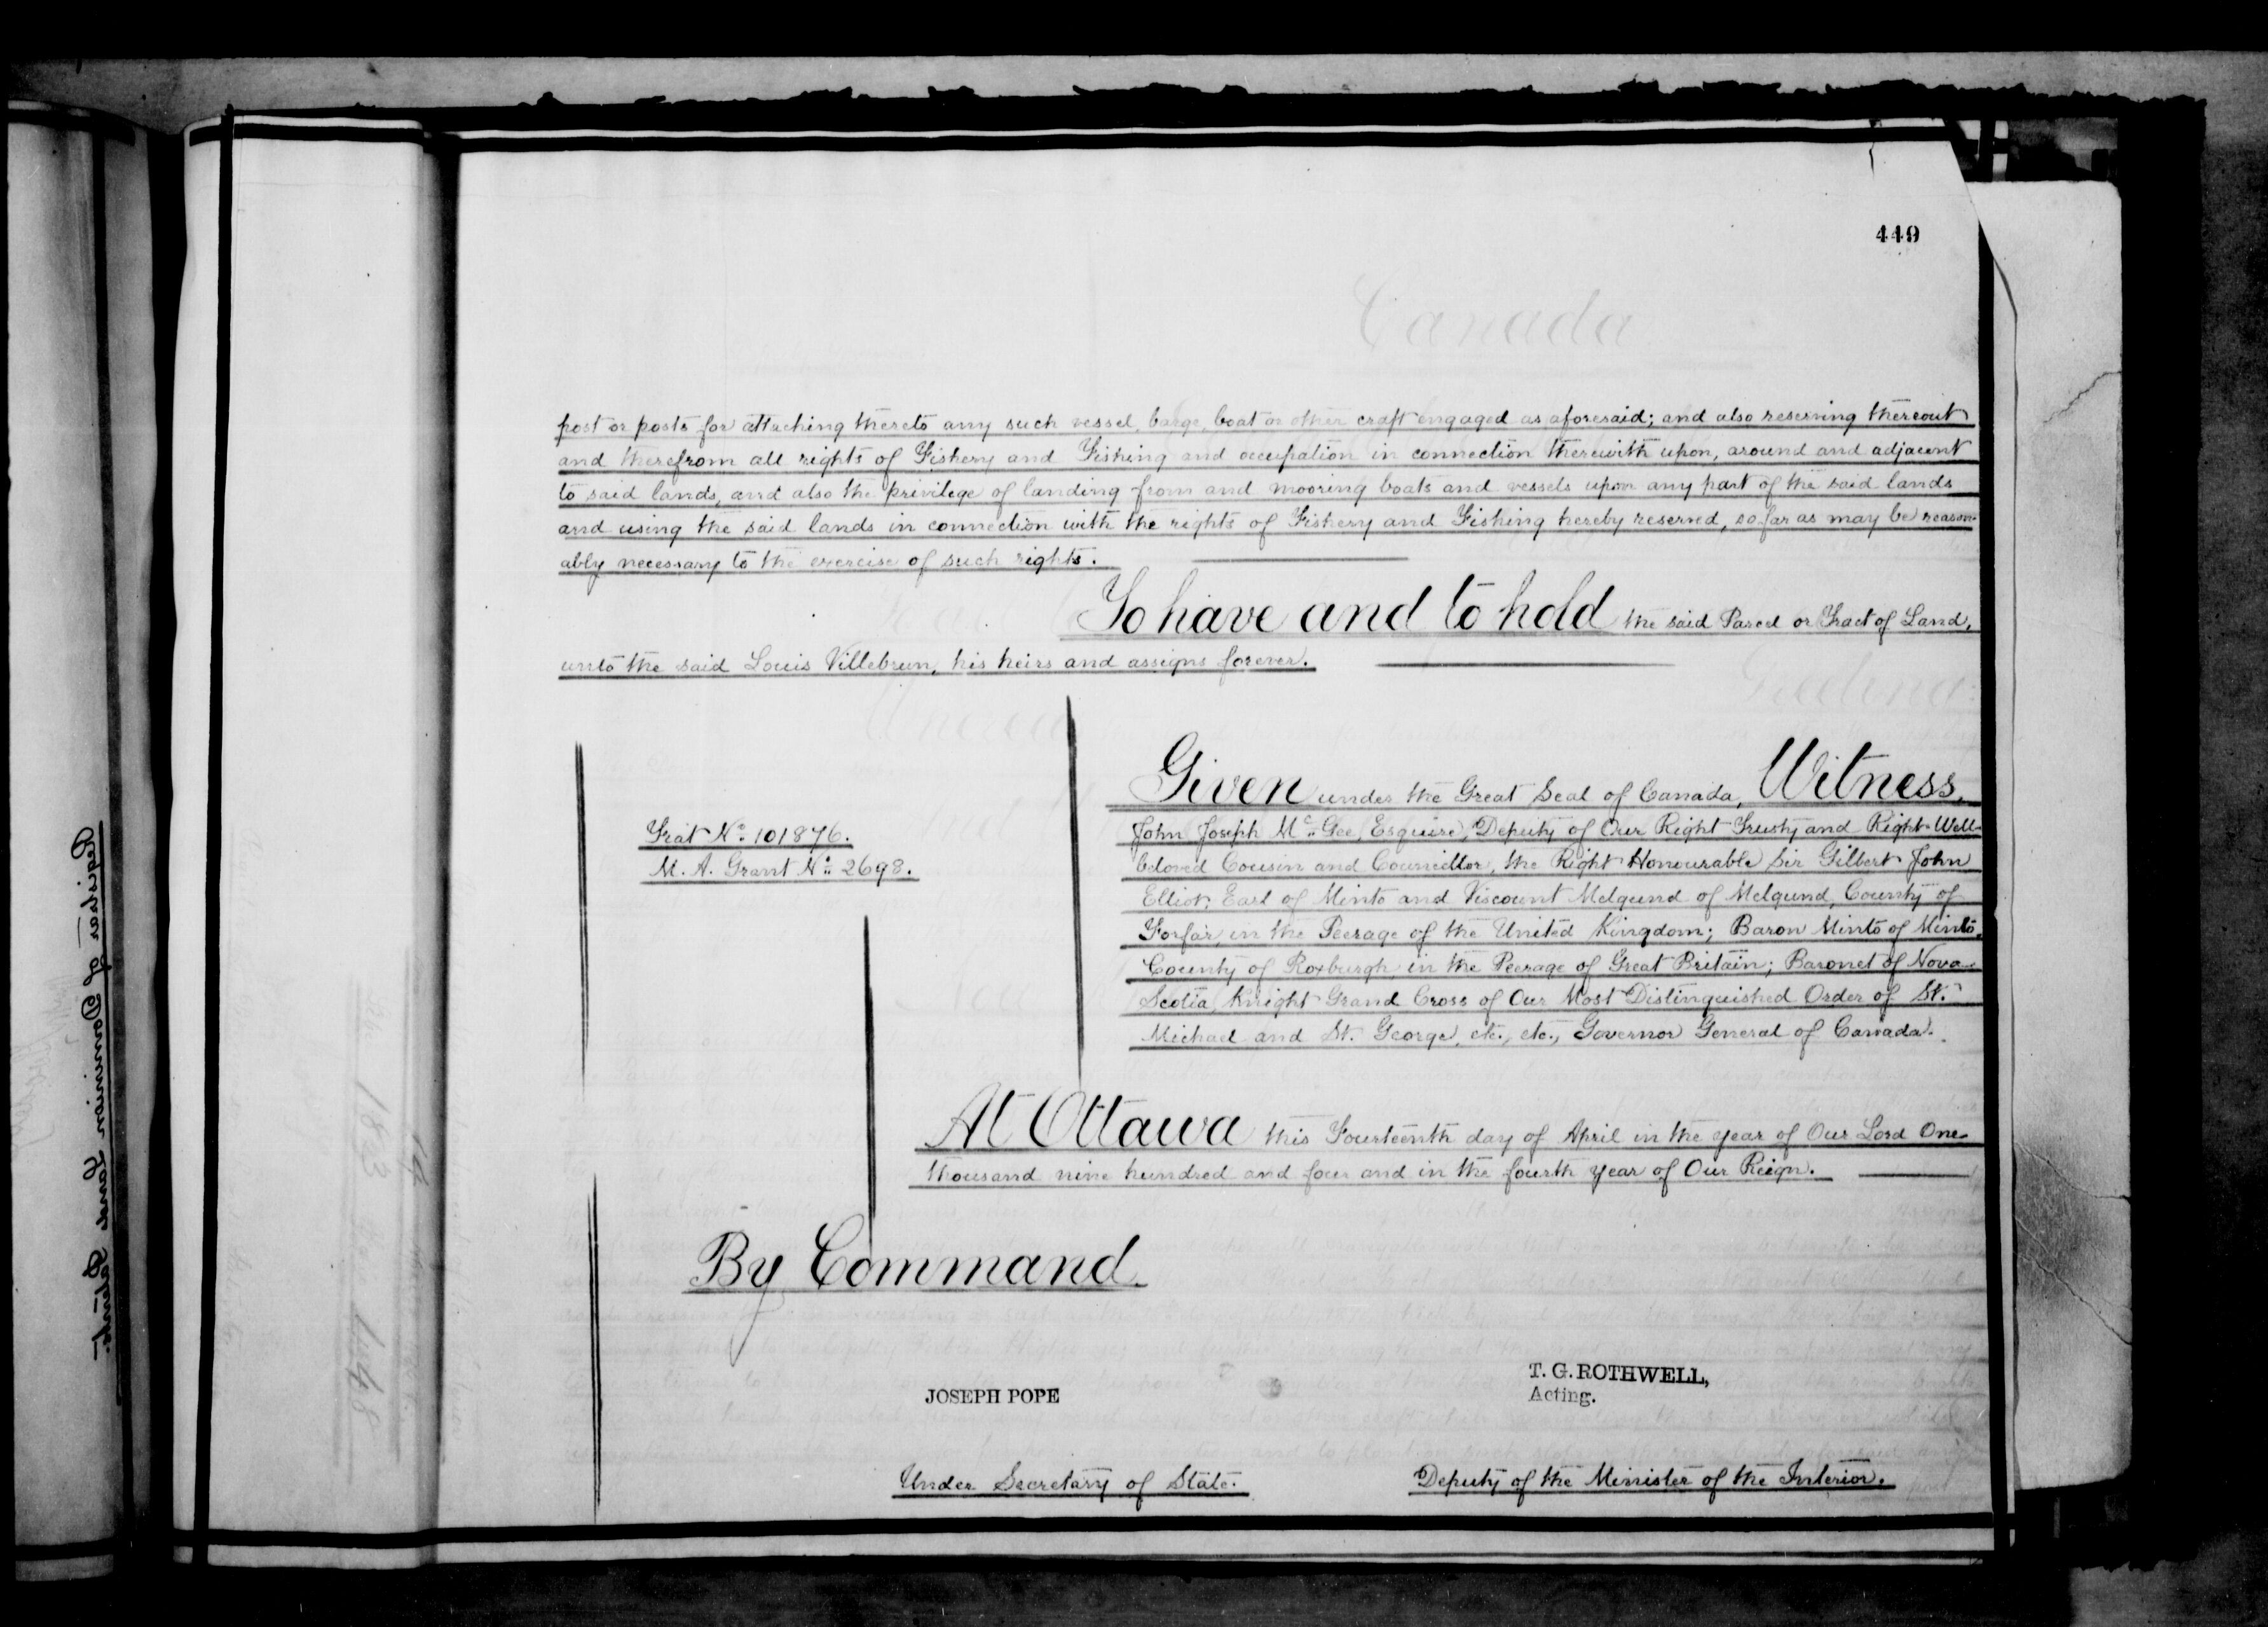 449
post or posts for attaching thereto any such vessel, barge, boat or other craft engaged as aforesaid; and also reserving thereout
and therefrom all rights of Fishery and Fishing and occupation in connection therewith upon, around and adjacent
to said lands, and also the privilege of landing from and mooring boats and vessels upon any part of the said lands
and using the said lands in connection with the rights of Fishery and Fishing hereby reserved, so far as may be reason-
ably necessary to the exercise of such rights.
To have and to hold the said Parcel or Tract of Land,
unto the said Louis Villebrun, his heirs and assigns forever.
Given under the Great Seal of Canada, Witness,
Fiat No. 101876.
M. A. Grant No. 2698.
John Joseph McGee, Esquire, Deputy of Our Right Trusty and Right Well-
beloved Cousin and Councillor, the Right Honourable Sir Gilbert John
Elliot, Earl of Minto and Viscount Melgund of Melgund, County of
Forfar, in the Peerage of the United Kingdom; Baron Minto of Minto,
County of Roxburgh, in the Peerage of Great Britain; Baronet of Nova
Scotia, Knight Grand Cross of Our Most Distinguished Order of St.
Michael and St. George, etc., etc., Governor General of Canada.
At Ottawa this Fourteenth day of April in the year of Our Lord One
thousand nine hundred and four and in the fourth year of Our Reign.
By Command
JOSEPH POPE
T. G. ROTHWELL,
Acting.
Under Secretary of State.
Deputy of the Minister of the Interior.
Registrar of Dominion Lands Patents.
Canada
Greeting
Whereas